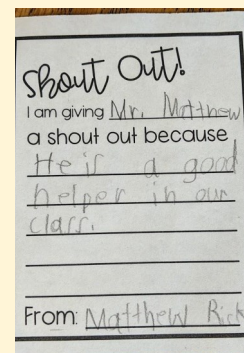 Shout Out!
I am giving Mr. Matthew
a shout out because
He is a good
helper in our
class.
From: Matthew Rick